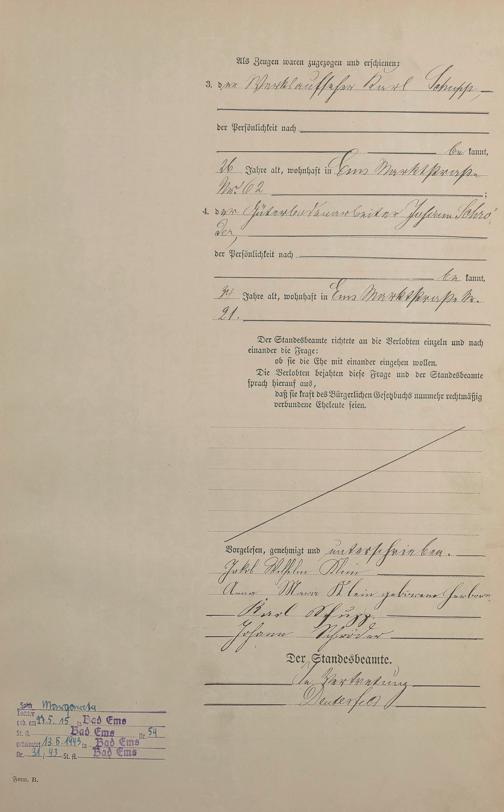 Als Zeugen waren zugezogen und erschienen:
3. der Werksaufseher Karl Schupp,
der Persönlichkeit nach
be kannt,
26 Jahre alt, wohnhaft in Ems Marktstraße
Nr. 62 ;
4. der Güterbodenarbeiter Johann Schrö-
der,
der Persönlichkeit nach
be kannt,
Jahre alt, wohnhaft in Ems Marktstraße Nr.
21.
Der Standesbeamte richtete an die Verlobten einzeln und nach
einander die Frage:
ob sie die Ehe mit einander eingehen wollen.
Die Verlobten bejahten diese Frage und der Standesbeamte
sprach hierauf aus,
daß sie kraft des Bürgerlichen Gesetzbuchs nunmehr rechtmäßig
verbundene Eheleute seien.
Vorgelesen, genehmigt und unterschrieben.
Jakob Wilhelm Klein
Anna Maria Klein geborene Herborn
Karl Schupp
Johann Schröder
Der Standesbeamte.
In Vertretung
Margareta
Tochter
geb. am 23.5.15 in Bad Ems
St. A. Bad Ems Nr. 54
geheiratet 13.6.1943 in Bad Ems
Nr. 31/43 St. A. Bad Ems
Form. B.